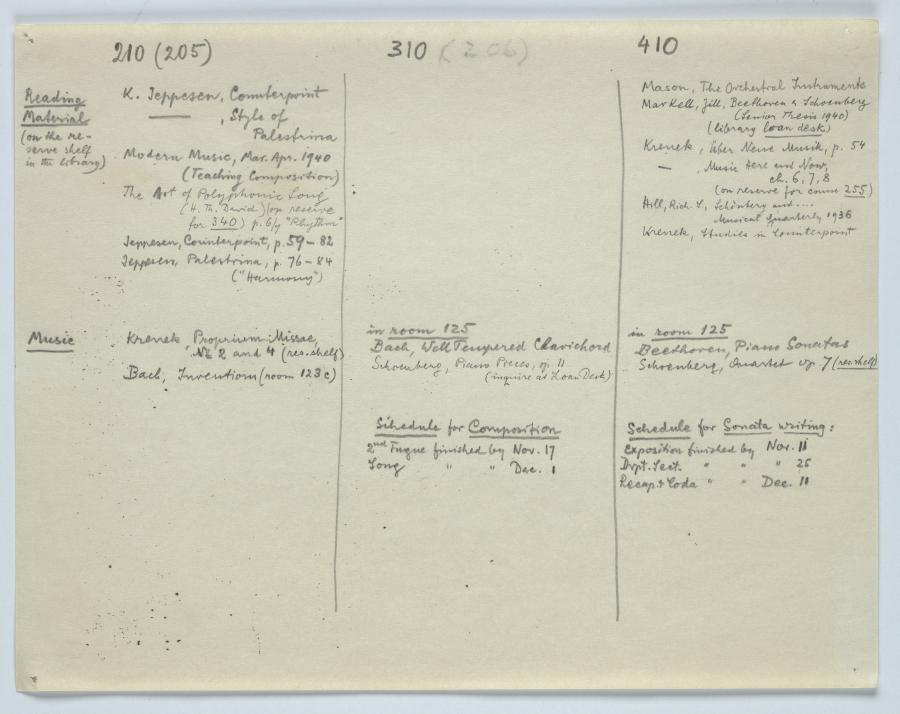 210 (205)
Reading
Material
(on the re-
serve shelf
in the library)
K. Jeppesen, Counterpoint
—— , Style of
Palestrina
Modern Music, Mar. Apr. 1940
(Teaching Composition)
The Art of Polyphonic Song
(H. Th. David) (on reserve
for 340) p. 6/7 "Rhythm"
Jeppesen, Counterpoint, p. 59–82
Jeppesen, Palestrina, p. 76–84
("Harmony")
Music
Krenek Proprium Missae,
No 2 and 4 (res. shelf)
Bach, Inventions (room 123c)
310 (206)
in room 125
Bach, Well Tempered Clavichord
Schoenberg, Piano Pieces, op. 11
(inquire at Loan Desk)
Schedule for Composition
2nd Fugue finished by Nov. 17
Song " " Dec. 1
410
Mason, The Orchestral Instruments
Markell, Jill, Beethoven & Schoenberg
(Senior Thesis 1940)
(library loan desk)
Krenek, Über Neue Musik, p. 54
— , Music Here and Now,
ch. 6, 7, 8
(on reserve for course 255)
Hill, Rich. S., Schönberg and....
Musical Quarterly 1936
Krenek, Studies in Counterpoint
in room 125
Beethoven, Piano Sonatas
Schoenberg, Quartet op. 7 (res. shelf)
Schedule for Sonata writing:
Exposition finished by Nov. 11
Dvpt. Sect. " " " 25
Recap. & Coda " " Dec. 11